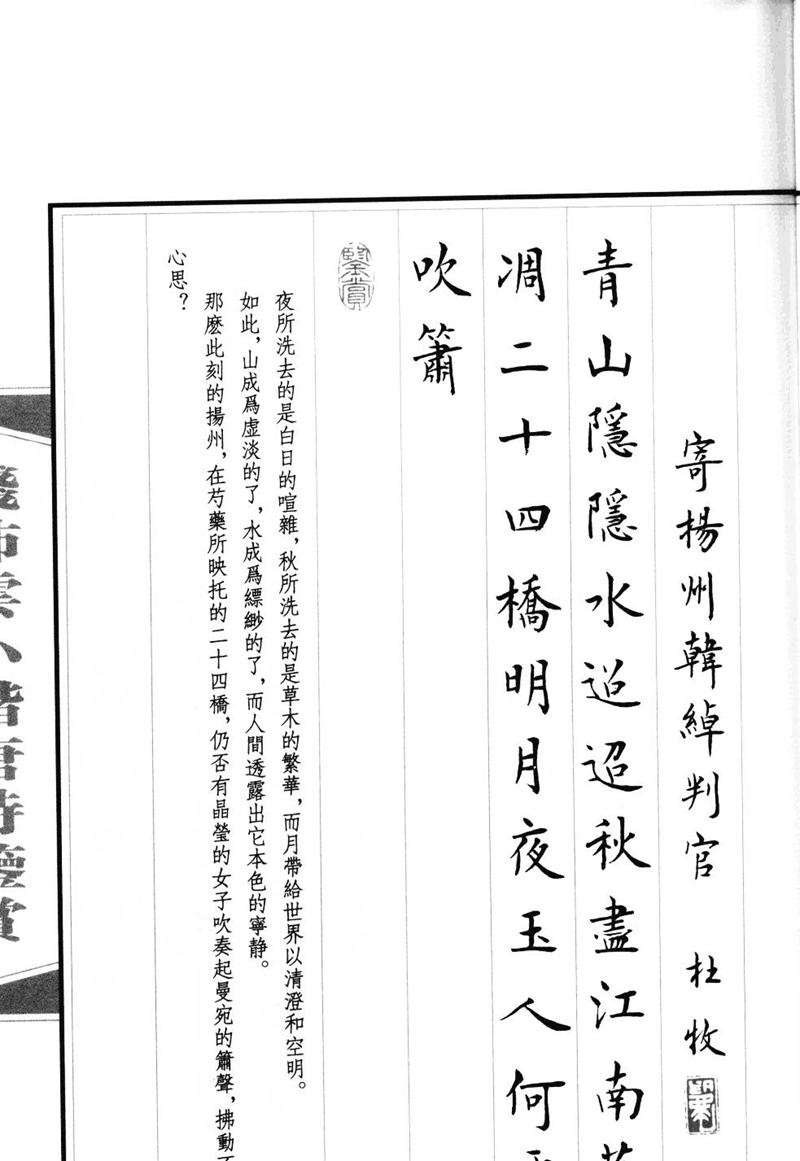 寄揚州韓綽判官 杜牧
青山隱隱水迢迢秋盡江南
凋二十四橋明月夜玉人何
吹簫
鑒賞
夜所洗去的是白日的喧雜，秋所洗去的是草木的繁華，而月帶給世界以清澄和空明。
如此，山成爲虛淡的了，水成爲縹緲的了，而人間透露出它本色的寧静。
那麽此刻的揚州，在芍藥所映托的二十四橋，仍否有晶瑩的女子吹奏起曼宛的簫聲，拂動
心思？
雲小楷唐詩鑒賞